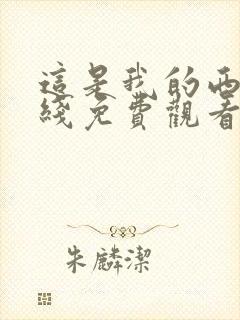 這是我的西
綫免費觀看
朱麟潔